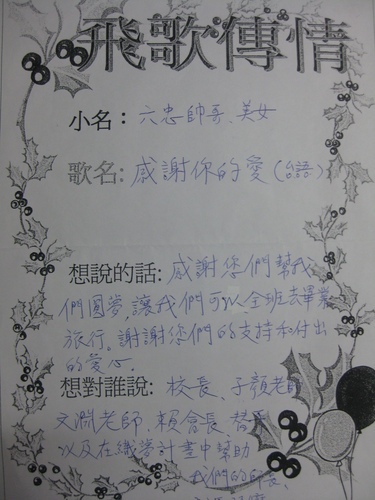 飛歌傳情
小名：六忠帥哥、美女
歌名:感謝你的愛(台語)
想說的話:感謝您們幫我
們圓夢,讓我們可以全班去畢業
旅行。謝謝您們的支持和付出
的愛心.
想對誰說:校長、子顏老師
文淵老師、賴會長、
以及在織夢計畫中幫助
我們的師長、